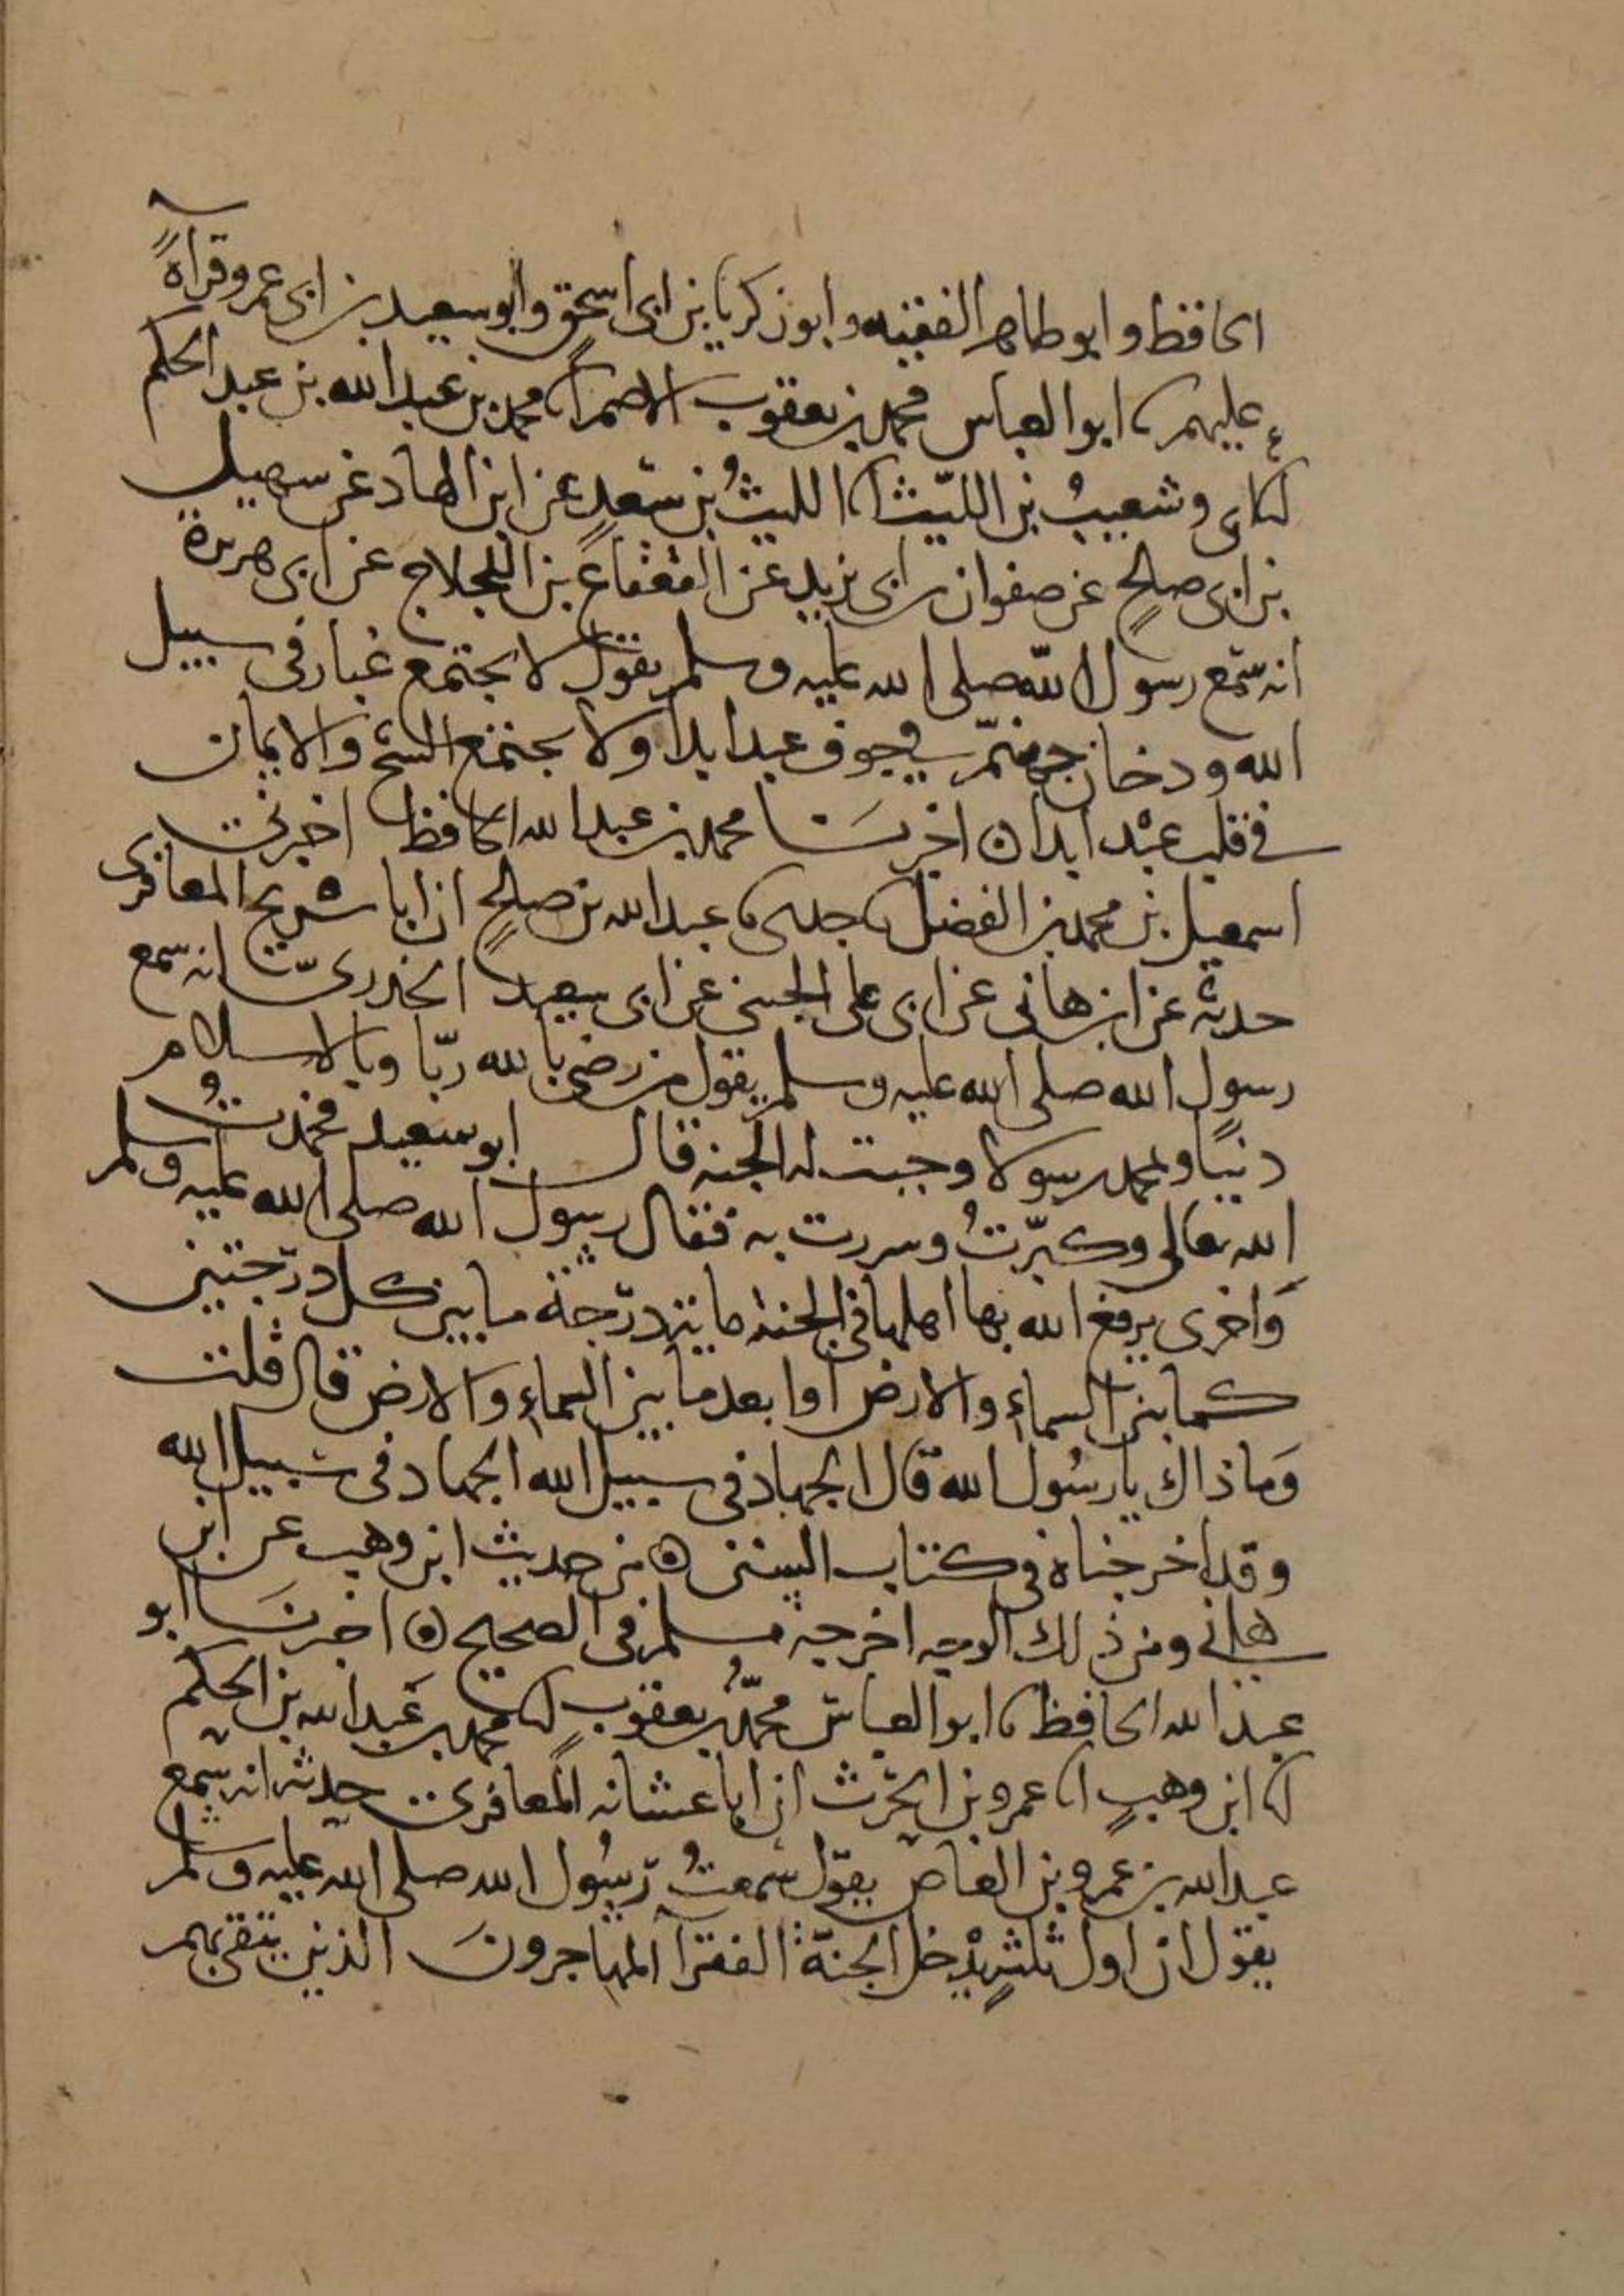 الحافظ وابو طاهر الفقيه وابو زكريا بن ابى اسحق وابو سعيد بن ابى عمرو قراةً
عليهم نا ابو العباس محمد بن يعقوب الاصم انا محمد بن عبد الله بن عبد الحكم
انا ابى وشعيبُ بن الليث انا الليثُ بن سعدٍ عن ابن الهاد عن سهيل
بن ابى صلحٍ عن صفوان بن ابى يزيد عن القعقاع بن اللجلاج عن ابى هريرة
انه سمع رسول الله صلى الله عليه وسلم يقول لا يجتمع غبار فى سبيل
الله ودخان جهنم فى جوف عبد ابدا ولا يجتمع الشح والايمان
فى قلب عبد ابدا ه اخبرنا محمد بن عبد الله الحافظ اخبرنى
اسمعيل بن محمد بن الفضل نا جدى نا عبد الله بن صلحٍ ان ابا شريح المعافرى
حدثه عن ابن هانى عن ابى على الجنبى عن ابى سعيد الخدرىّ انه سمع
رسول الله صلى الله عليه وسلم يقول من رضى بالله ربّا وبالاسلام
دنيًا وبمحمد رسولا وجبت له الجنه قال ابو سعيد فحمدتُ
الله تعالى وكبّرتُ وسررت به فقال رسول الله صلى الله عليه وسلم
وَاخرى يرفع الله بها اهلها فى الجنة ماية درجة ما بين كل درجتين
كما بين السماء والارض او ابعد ما بين السماء والارض قال قلت
وَما ذاك يا رسُول الله قال الجهاد فى سبيل الله الجهاد فى سبيل الله
وقد اخرجناه فى كتاب السنن ه من حديث ابن وهب عن ابن
هانى ومن ذلك الوجه اخرجه مسلم فى الصحيح ه اخبرنَا ابو
عبد الله الحافظ نا ابو العباس محمدُ بن يعقوب انا محمد بن عَبد الله بن الحكم
انا ابن وهبٍ انا عمرو بن الحرث ان ابا عشانه المعافرى حدثه انه سمع
عبد الله بن عمرو بن العاص يقول سمعتُ رسُول الله صلى الله عليه وسلم
يقول ان اول ثلثهٍ يدْخل الجنّة الفقرآ المهاجرونَ الذين يتقى بهم